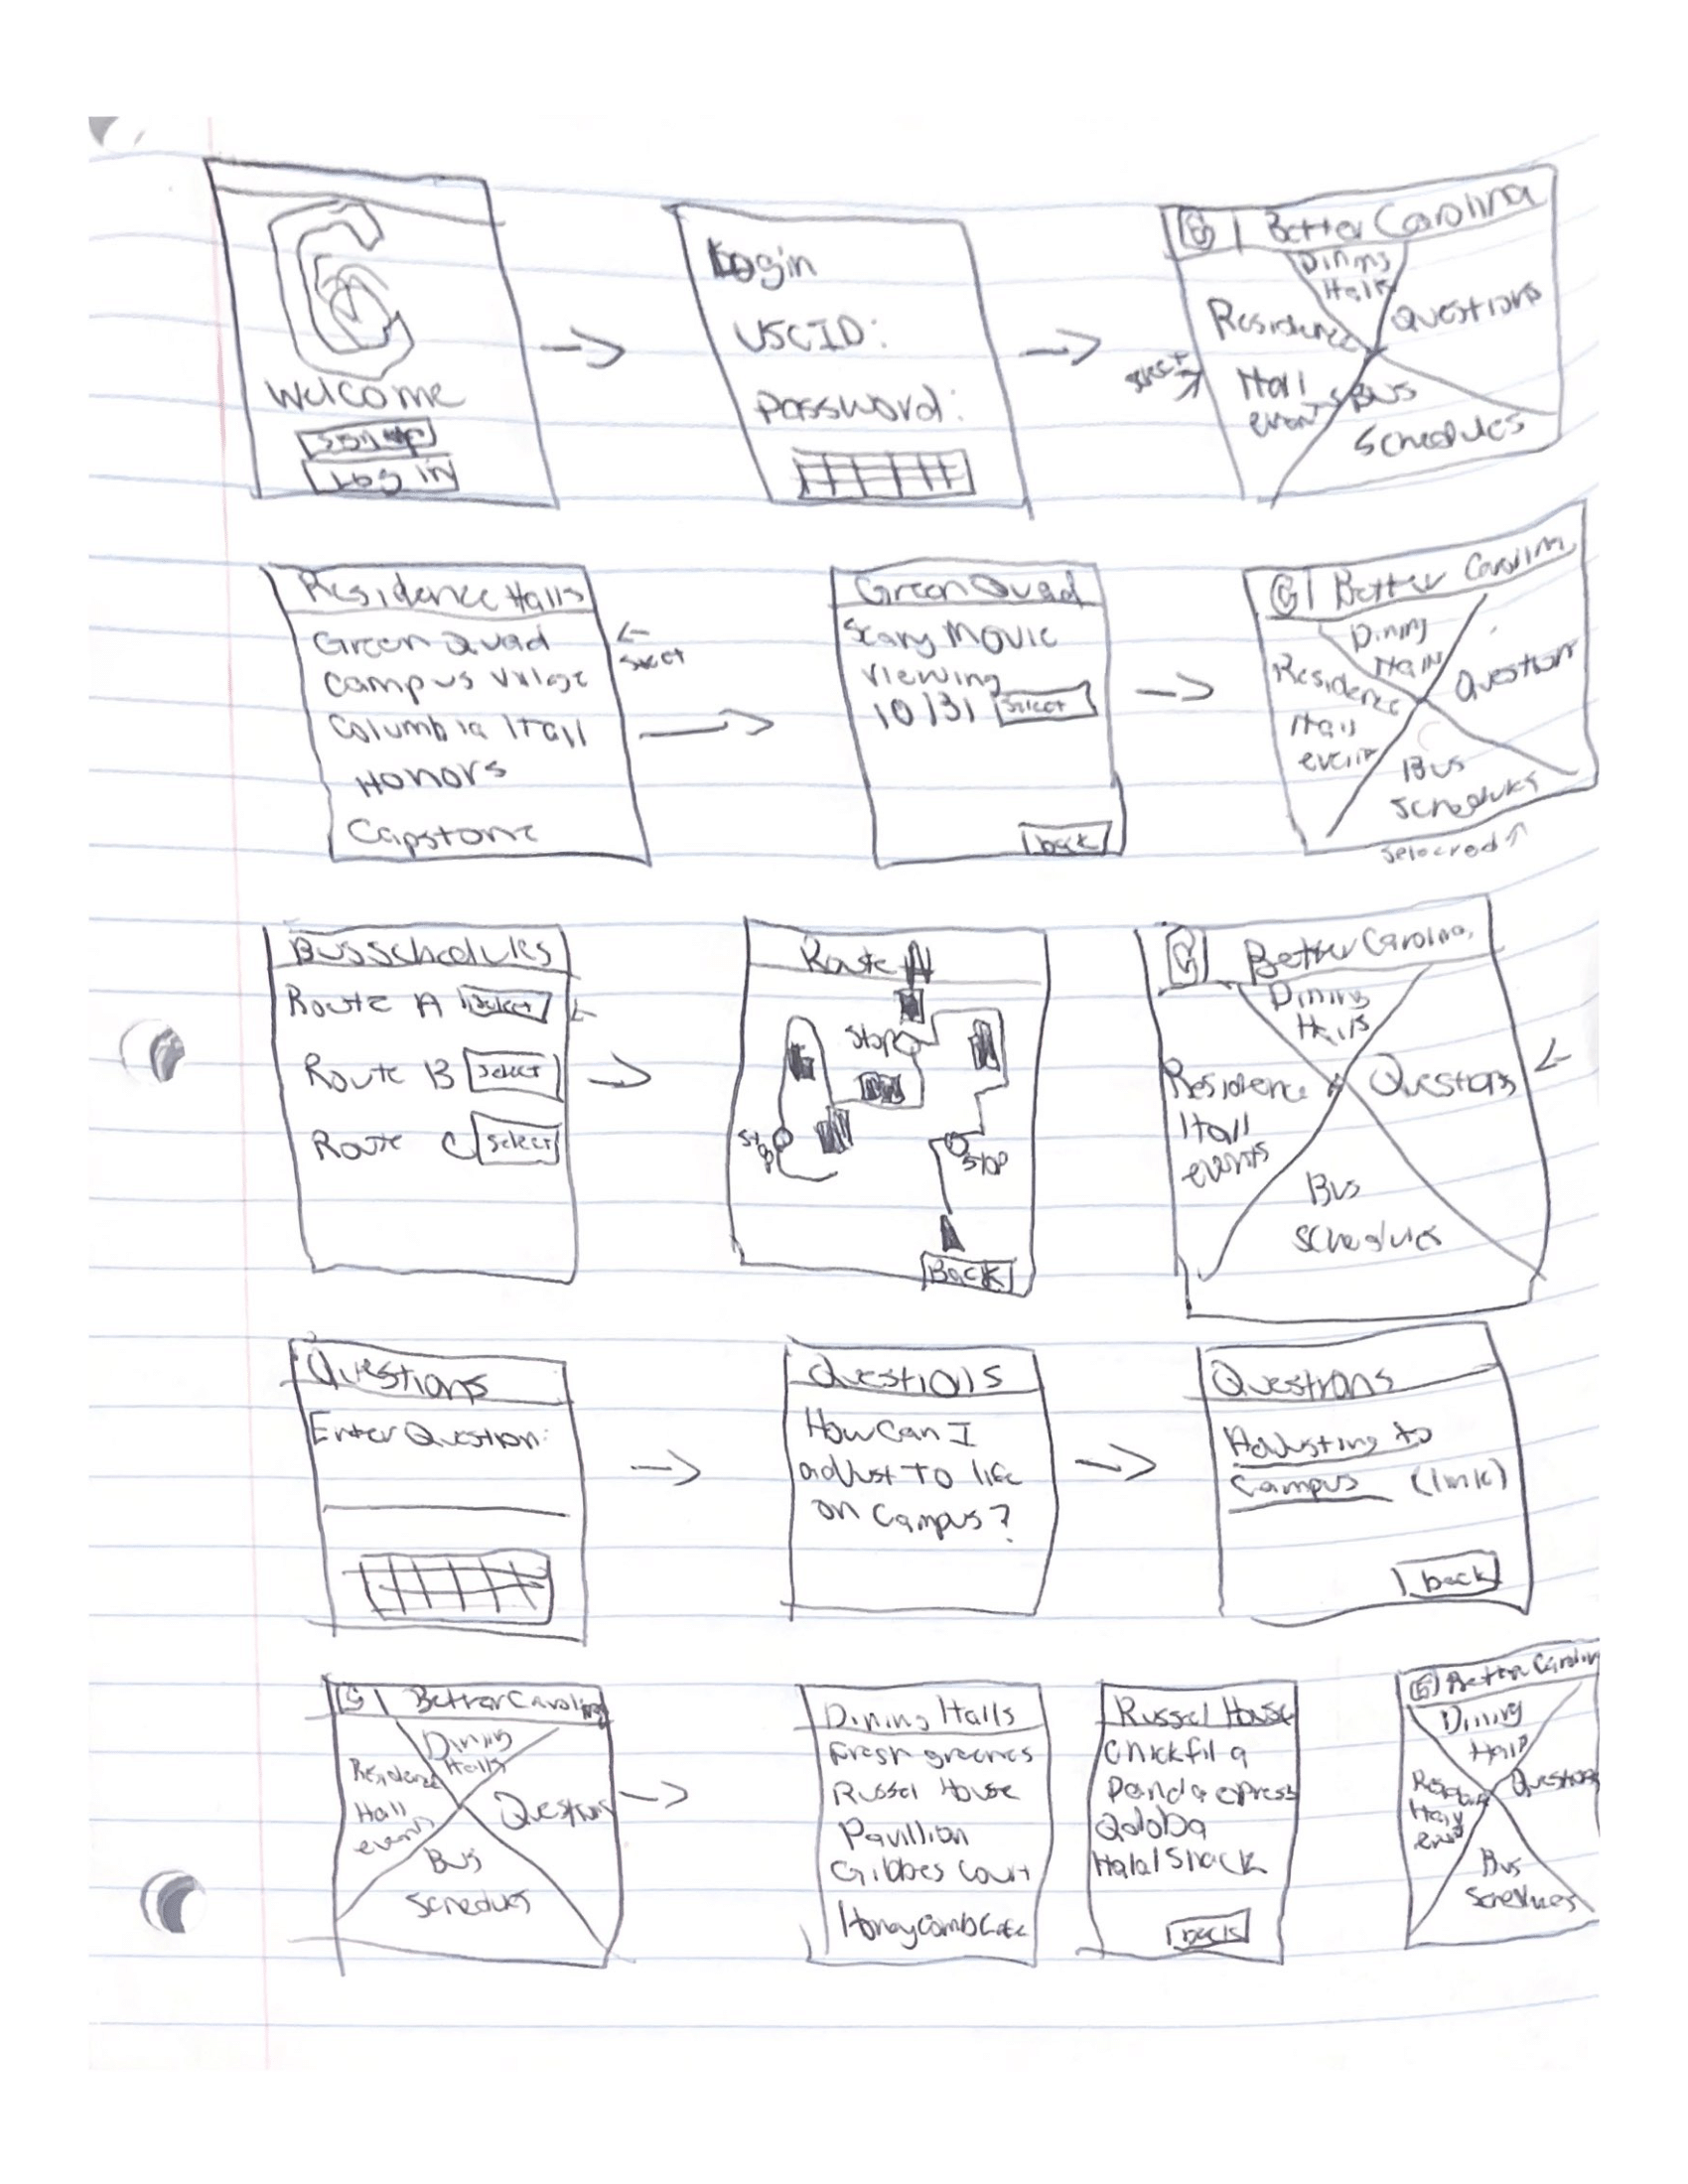 Welcome
Sign up
Log in
Login
USCID:
Password:
Better Carolina
Dining
Halls
Residence
Hall
events
Questions
Bus
Schedules
select
Residence Halls
Green Quad
Campus Village
Columbia Hall
Honors
Capstone
select
Green Quad
Scary Movie
Viewing
10/31 Select
back
Better Carolina
Dining
Halls
Residence
Hall
event
Question
Bus
Schedules
selected
Bus Schedules
Route A Select
Route B Select
Route C Select
Route A
Stop
Stop
Stop
Back
Better Carolina
Dining
Halls
Residence
Hall
events
Questions
Bus
Schedules
Questions
Enter Question:
Questions
How Can I
adjust to life
on Campus?
Questions
Adjusting to
Campus (link)
back
Better Carolina
Dining
Halls
Residence
Hall
events
Questions
Bus
Schedules
Dining Halls
Fresh greenes
Russel House
Pavillion
Gibbes Court
Honeycomb Cafe
Russel House
Chickfila
Panda express
Qdoba
Halal Shack
back
Better Carolin
Dining
Halls
Hall
event
Questions
Bus
Schedules